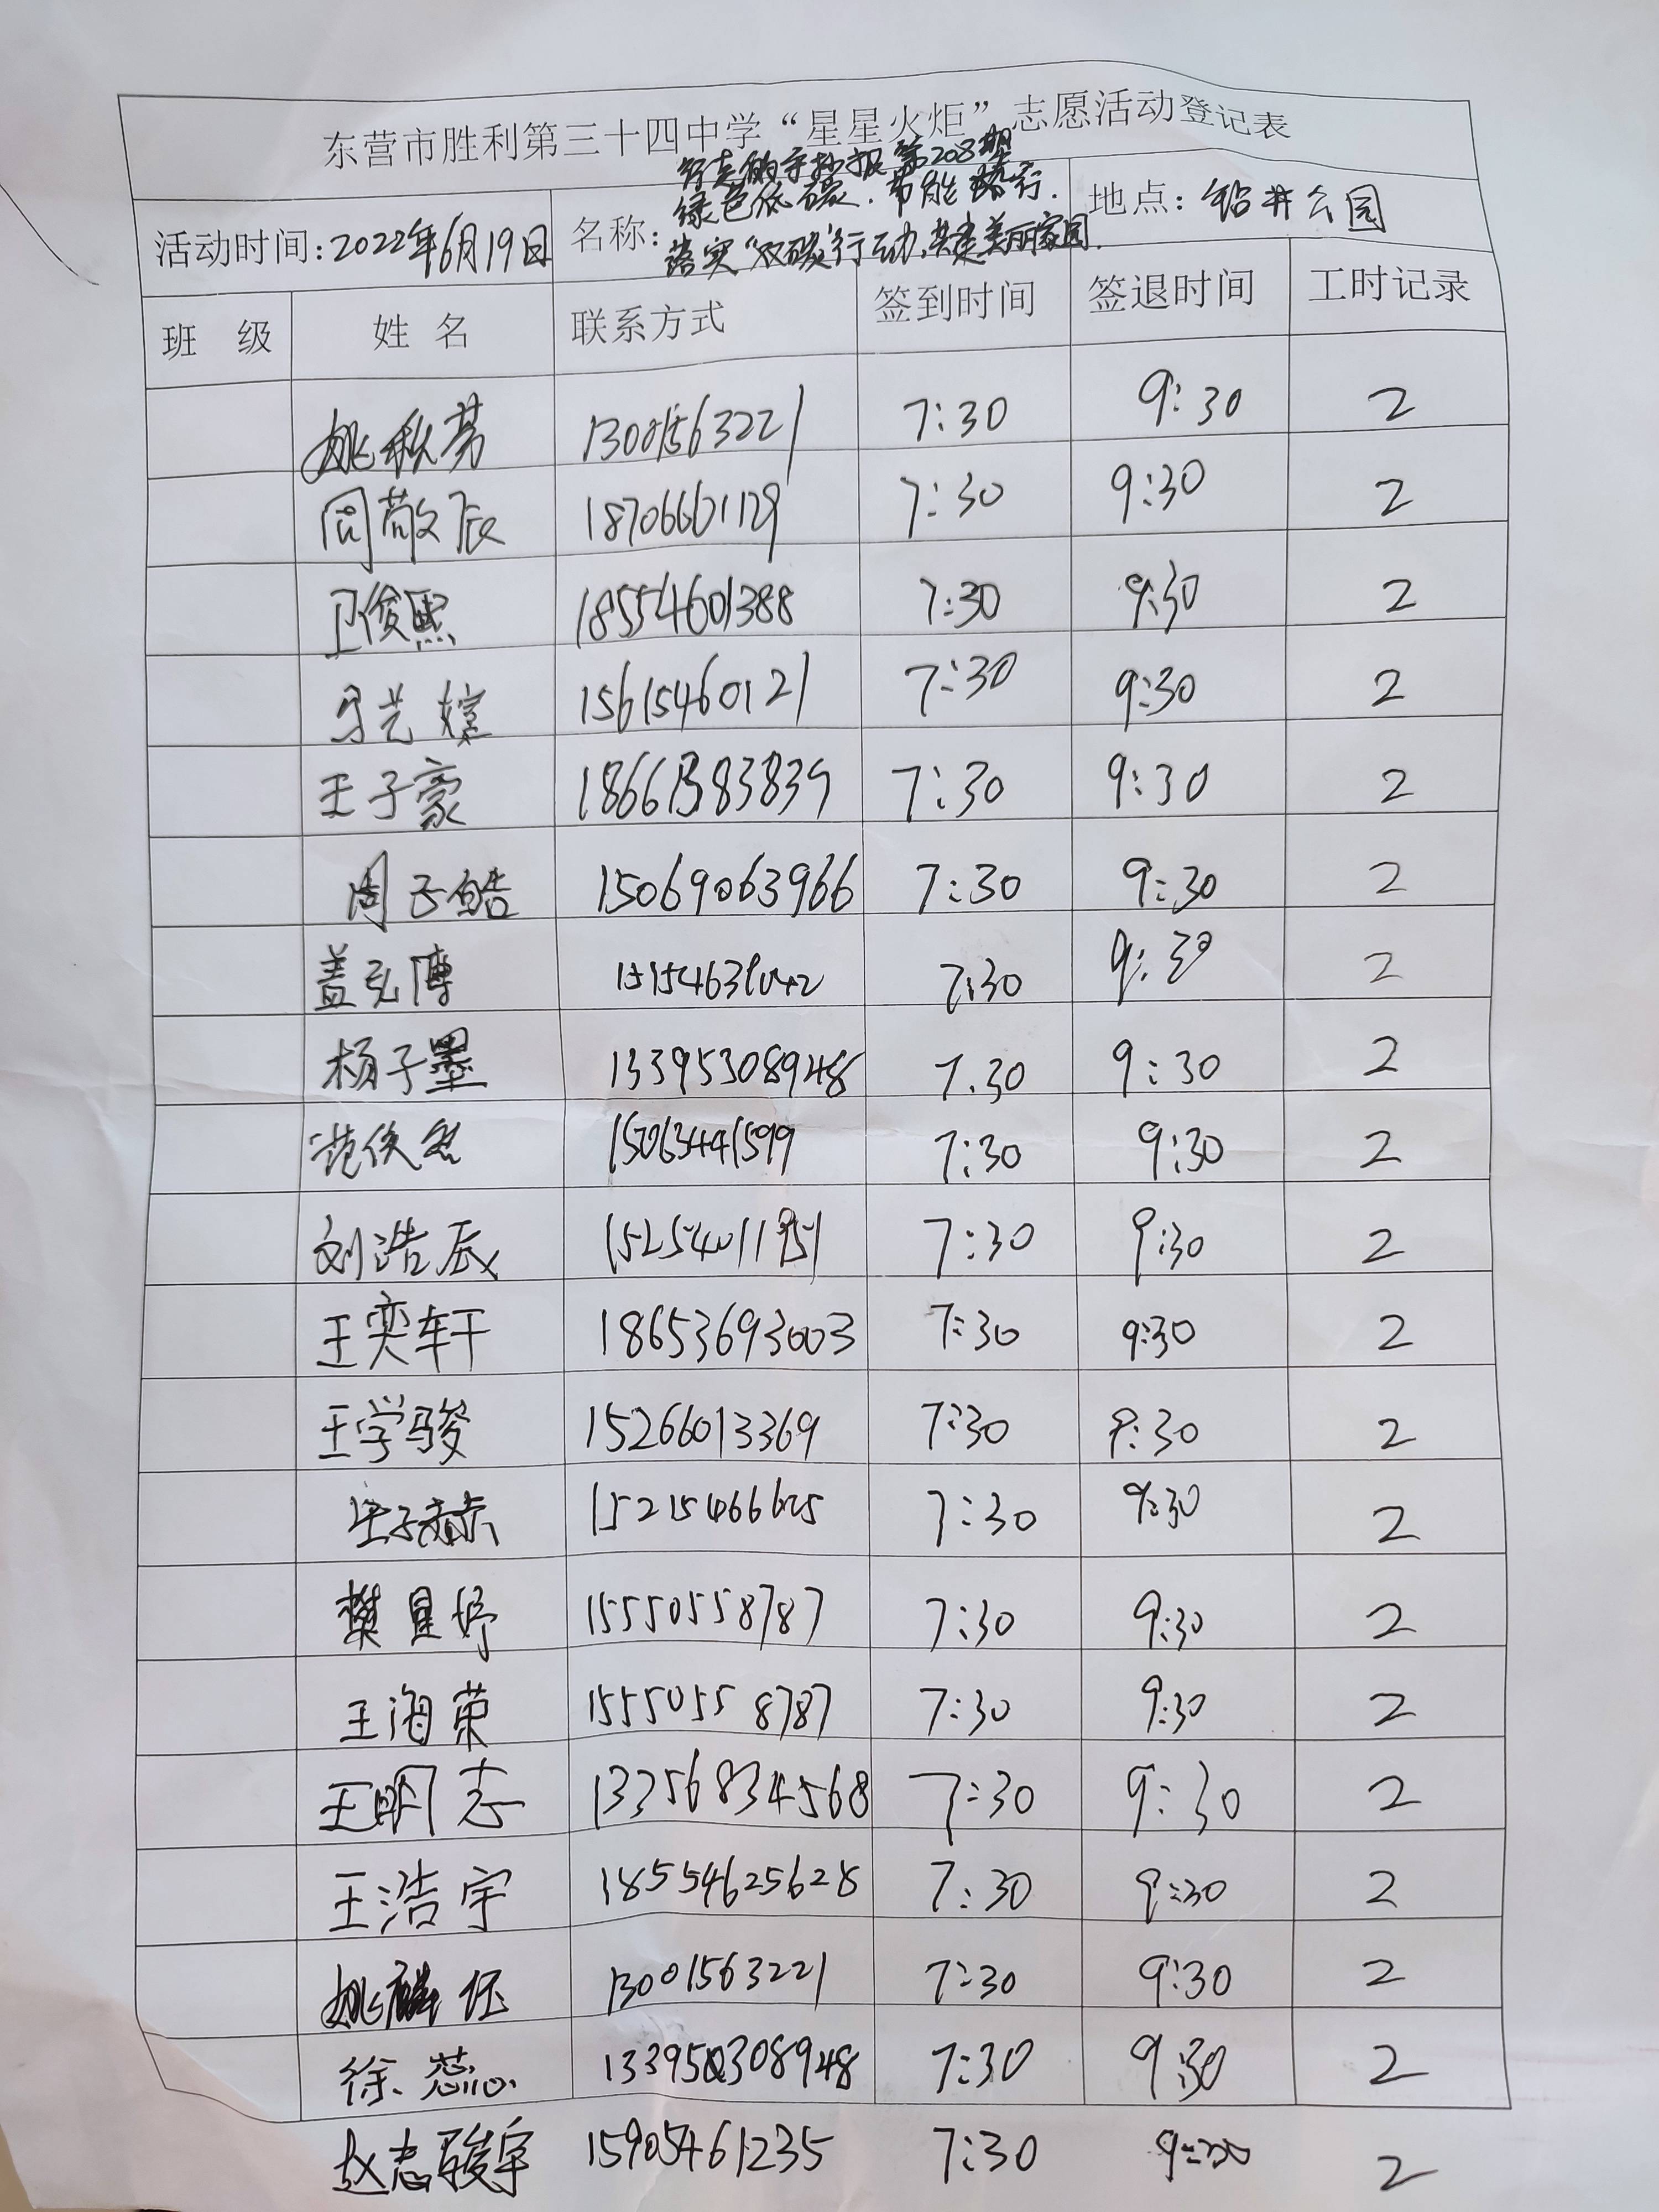 东营市胜利第三十四中学“星星火炬”志愿活动登记表
活动时间:2022年6月19日 名称: 行走的手抄报第208期 地点: 钻井公园
绿色低碳.节能踏行.
落实“双碳”行动,共建美丽家园.
班 级 姓 名 联系方式 签到时间 签退时间 工时记录
姚秋芳 13001563221 7:30 9:30 2
周敬辰 18706661129 7:30 9:30 2
卫俊熙 18554601388 7:30 9:30 2
马艺嫙 15615460121 7:30 9:30 2
王子豪 18661383839 7:30 9:30 2
周子皓 15069063966 7:30 9:30 2
盖弘博 7:30 9:30 2
杨子墨 13395308948 7.30 9:30 2
范 15063441599 7:30 9:30 2
刘浩辰 15254011951 7:30 9:30 2
王奕轩 18653693003 7:30 9:30 2
王学骏 15266013369 7:30 9:30 2
子赫 15215466625 7:30 9:30 2
樊星妤 15550558787 7:30 9:30 2
王海荣 15550558787 7:30 9:30 2
王明志 13256834568 7:30 9:30 2
王浩宇 18554625628 7:30 9:30 2
姚麟伍 13001563221 7:30 9:30 2
徐蕊 7:30 9:30 2
赵志骏宇 15905461235 7:30 9:30 2